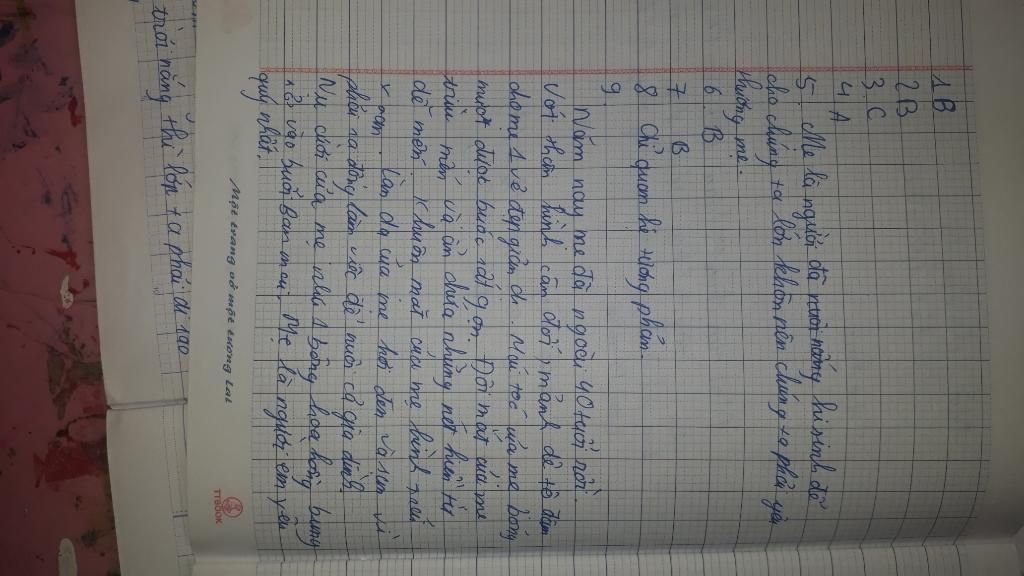 1B
2B
3. C
4. A
5. Mẹ là người đã nuôi nấng hi sinh để
cho chúng ta lớn khôn nên chúng ta phải yêu
thương mẹ.
6. B
7 B
8 Chỉ quan hệ tương phản.
9
Năm nay mẹ đã ngoài 40 tuổi rồi.
Với thân hình cân đối, mảnh dẻ tô đậm
cho mẹ 1 vẻ đẹp giản dị. Mái tóc của mẹ bóng
mượt được buộc rất gọn. Đôi mắt của mẹ
trìu mến và ẩn chứa những nét hiền từ
dễ mến. Khuôn mặt của mẹ hình trái
xoan. Làn da của mẹ hơi đen và sạm vì
phải ra đồng làm việc để nuôi cả gia đình.
Nụ cười của mẹ như 1 bông hoa hồng bung
nở vào buổi ban mai. Mẹ là người em yêu
quý nhất.
Mỗi trang vở một tương lai
TTBOOK
trời nắng thì lớp ta phải đi lao